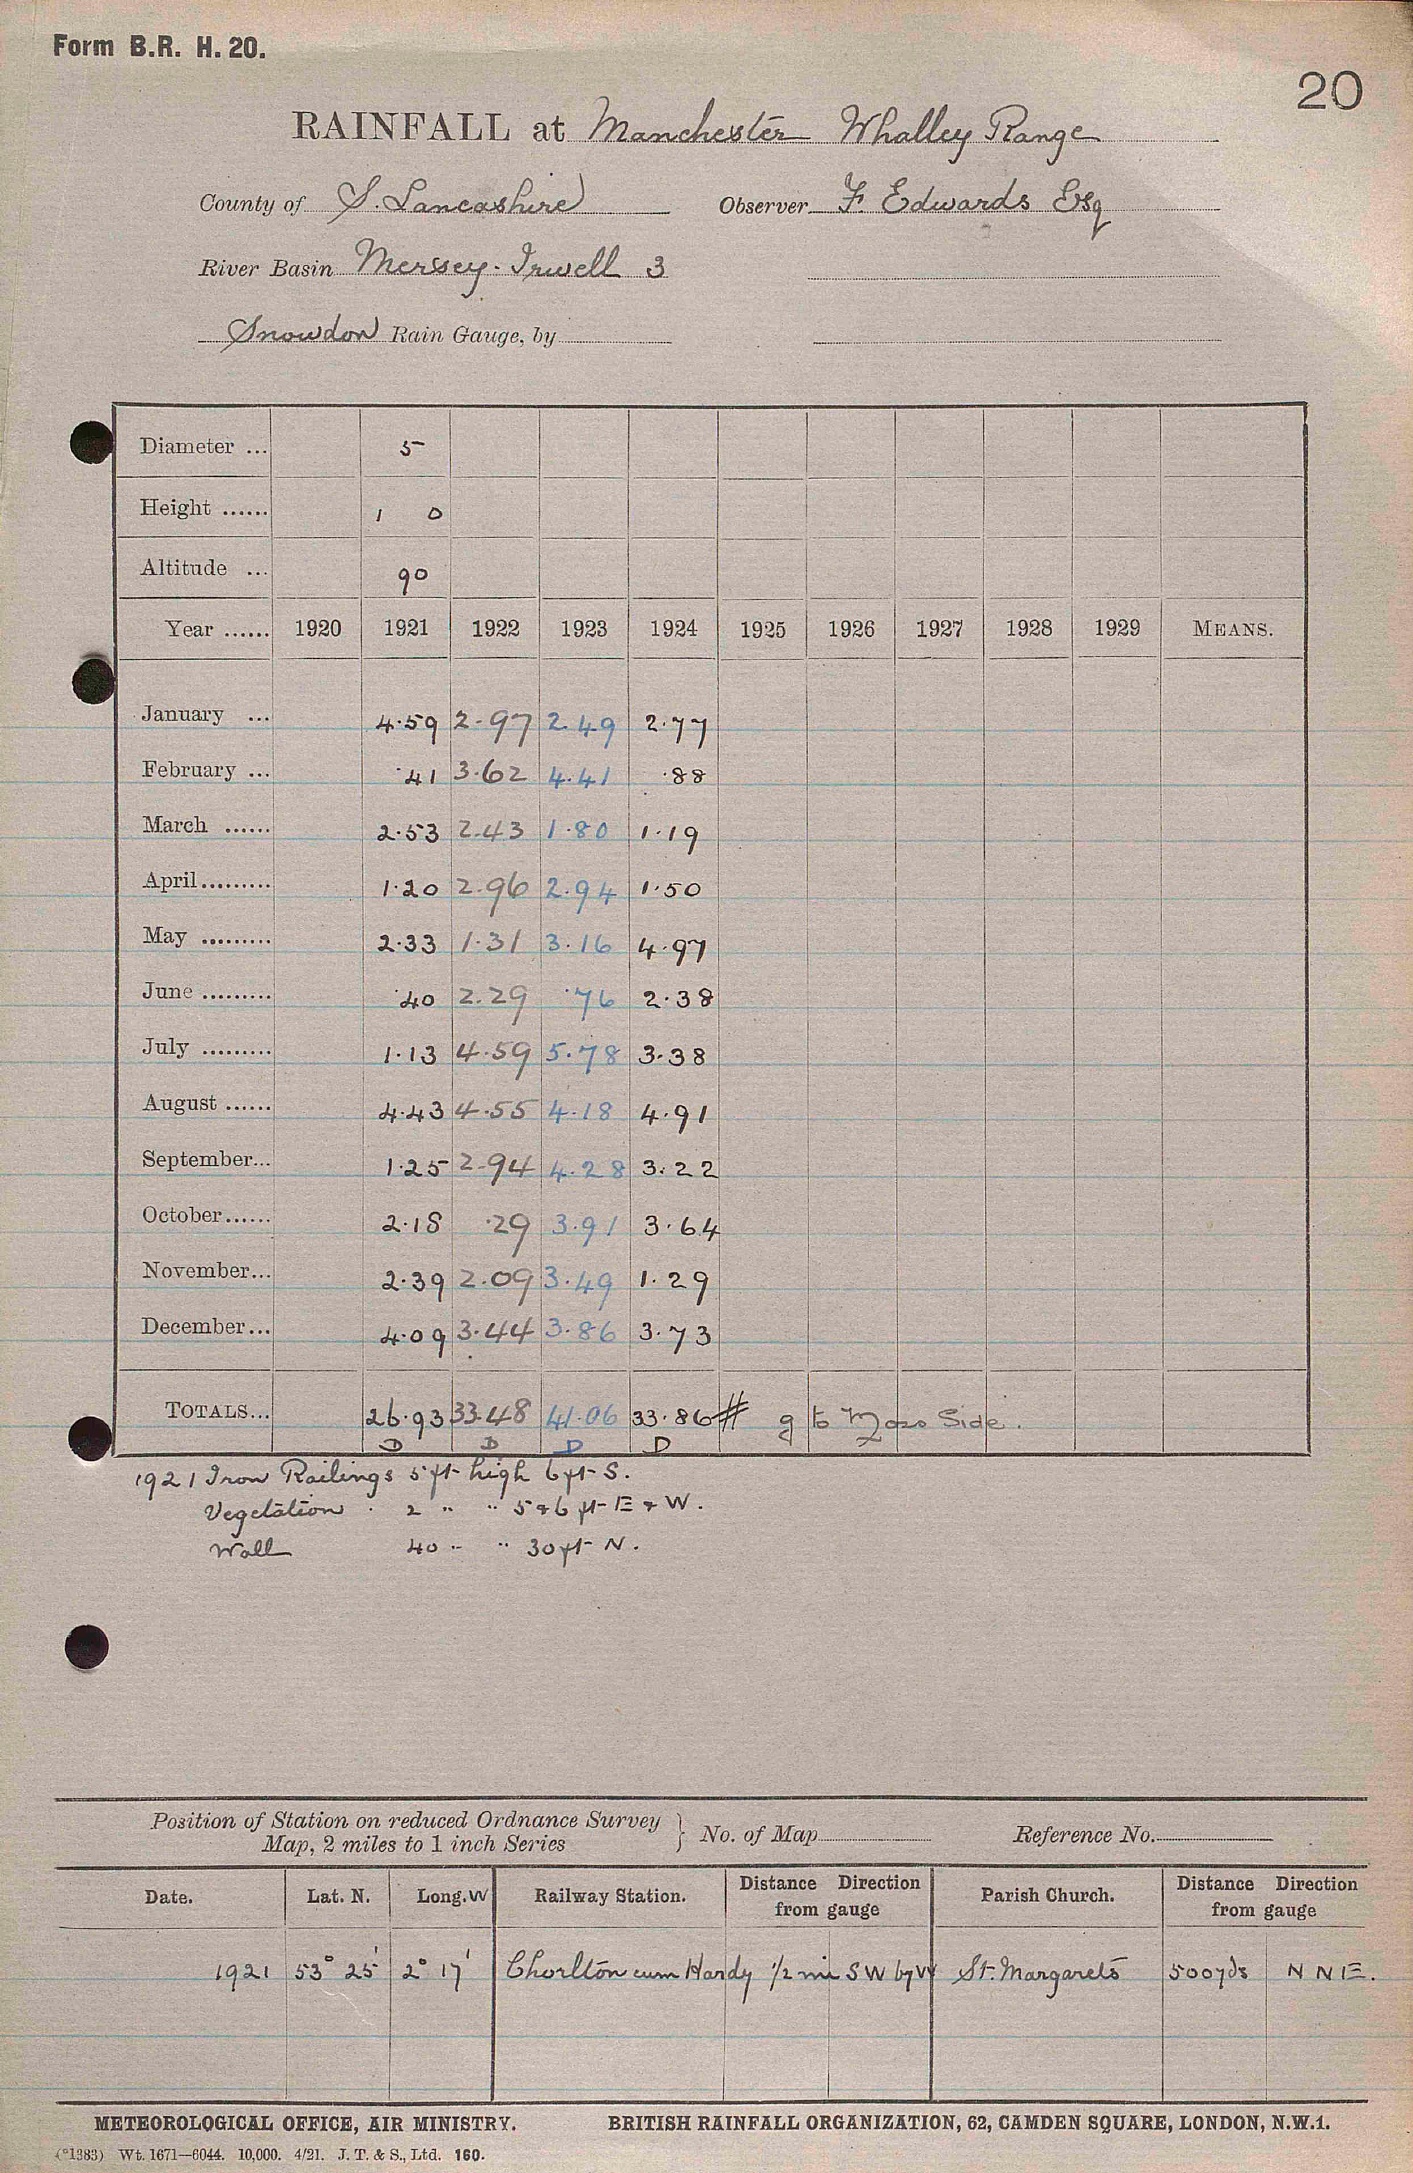 Form B.R. H. 20.
20
RAINFALL at Manchester Whalley Range
County of S. Lancashire Observer F. Edwards Esq
River Basin Mersey-Irwell 3
Snowdon Rain Gauge, by
Diameter ... 5
Height ...... 1 0
Altitude ... 90
Year ...... 1920 1921 1922 1923 1924 1925 1926 1927 1928 1929 MEANS.
January ... 4.59 2.97 2.49 2.77
February ... .41 3.62 4.41 .88
March ...... 2.53 2.43 1.80 1.19
April......... 1.20 2.96 2.94 1.50
May ......... 2.33 1.31 3.16 4.97
June ......... .40 2.29 .76 2.38
July ......... 1.13 4.59 5.78 3.38
August ...... 4.43 4.55 4.18 4.91
September... 1.25 2.94 4.28 3.22
October...... 2.18 .29 3.91 3.64
November... 2.39 2.09 3.49 1.29
December... 4.09 3.44 3.86 3.73
TOTALS... 26.93 33.48 41.06 33.86 # g to Moss Side.
D D D D
1921 Iron Railings 5 ft high 6 ft S.
Vegetation . 2 " " 5 & 6 ft E & W.
Wall 40 " " 30 ft N.
Position of Station on reduced Ordnance Survey
Map, 2 miles to 1 inch Series } No. of Map Reference No.
Date. Lat. N. Long. W Railway Station. Distance Direction from gauge Parish Church. Distance Direction from gauge
1921 53° 25' 2° 17' Chorlton cum Hardy 1/2 mi SW by W St. Margarets 500yds N N E.
METEOROLOGICAL OFFICE, AIR MINISTRY. BRITISH RAINFALL ORGANIZATION, 62, CAMDEN SQUARE, LONDON, N.W.1.
(*1383) Wt. 1671—6044. 10,000. 4/21. J. T. & S., Ltd. 160.